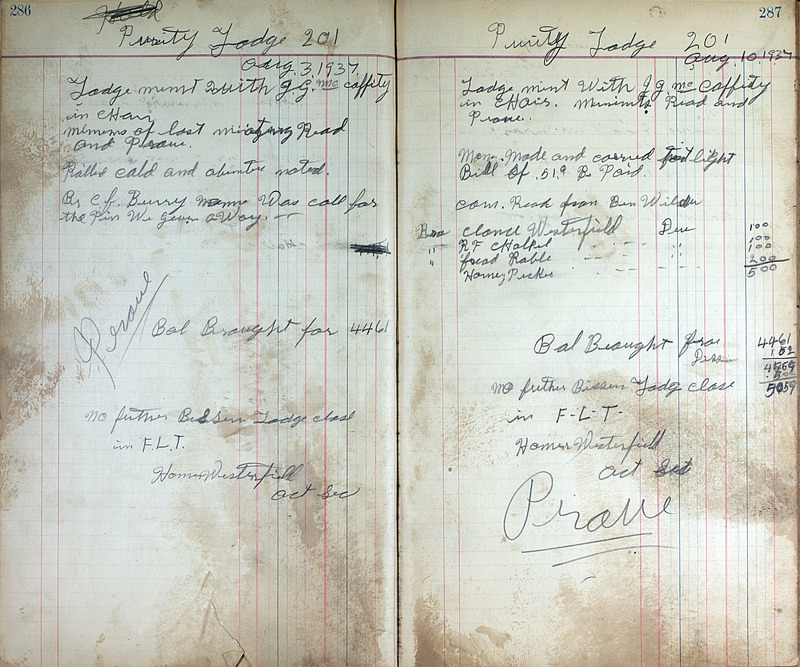 286
Purity Lodge 201
Aug. 3, 1937.
Lodge ment With J.G. Mc Caffity
in CHair
minens of last Read
and Prove.
Rolled cald and noted.
Br C.f. Berry Was call for
the Pin We Gave a Way.
Prove
Bal Brought for 4461
no futher Bissen Lodge close
in F.L.T.
Homer Westerfill
act Sec
287
Purity Lodge 201
Aug 10, 1937
Lodge ment With J.G Mc Caffity
in CHair. minents Read and
Prove.
Mon. Made and carred light
Bill Of .51.9 Be Paid.
com. Read from Ben Wilder
Bro Westerfield Due 100
" RF 100
" Rable 100
" 200
500
Bal Brought from 4461
5059
no futher Bissen Lodge close
in F-L-T-
Homer Westerfill
act
Prove